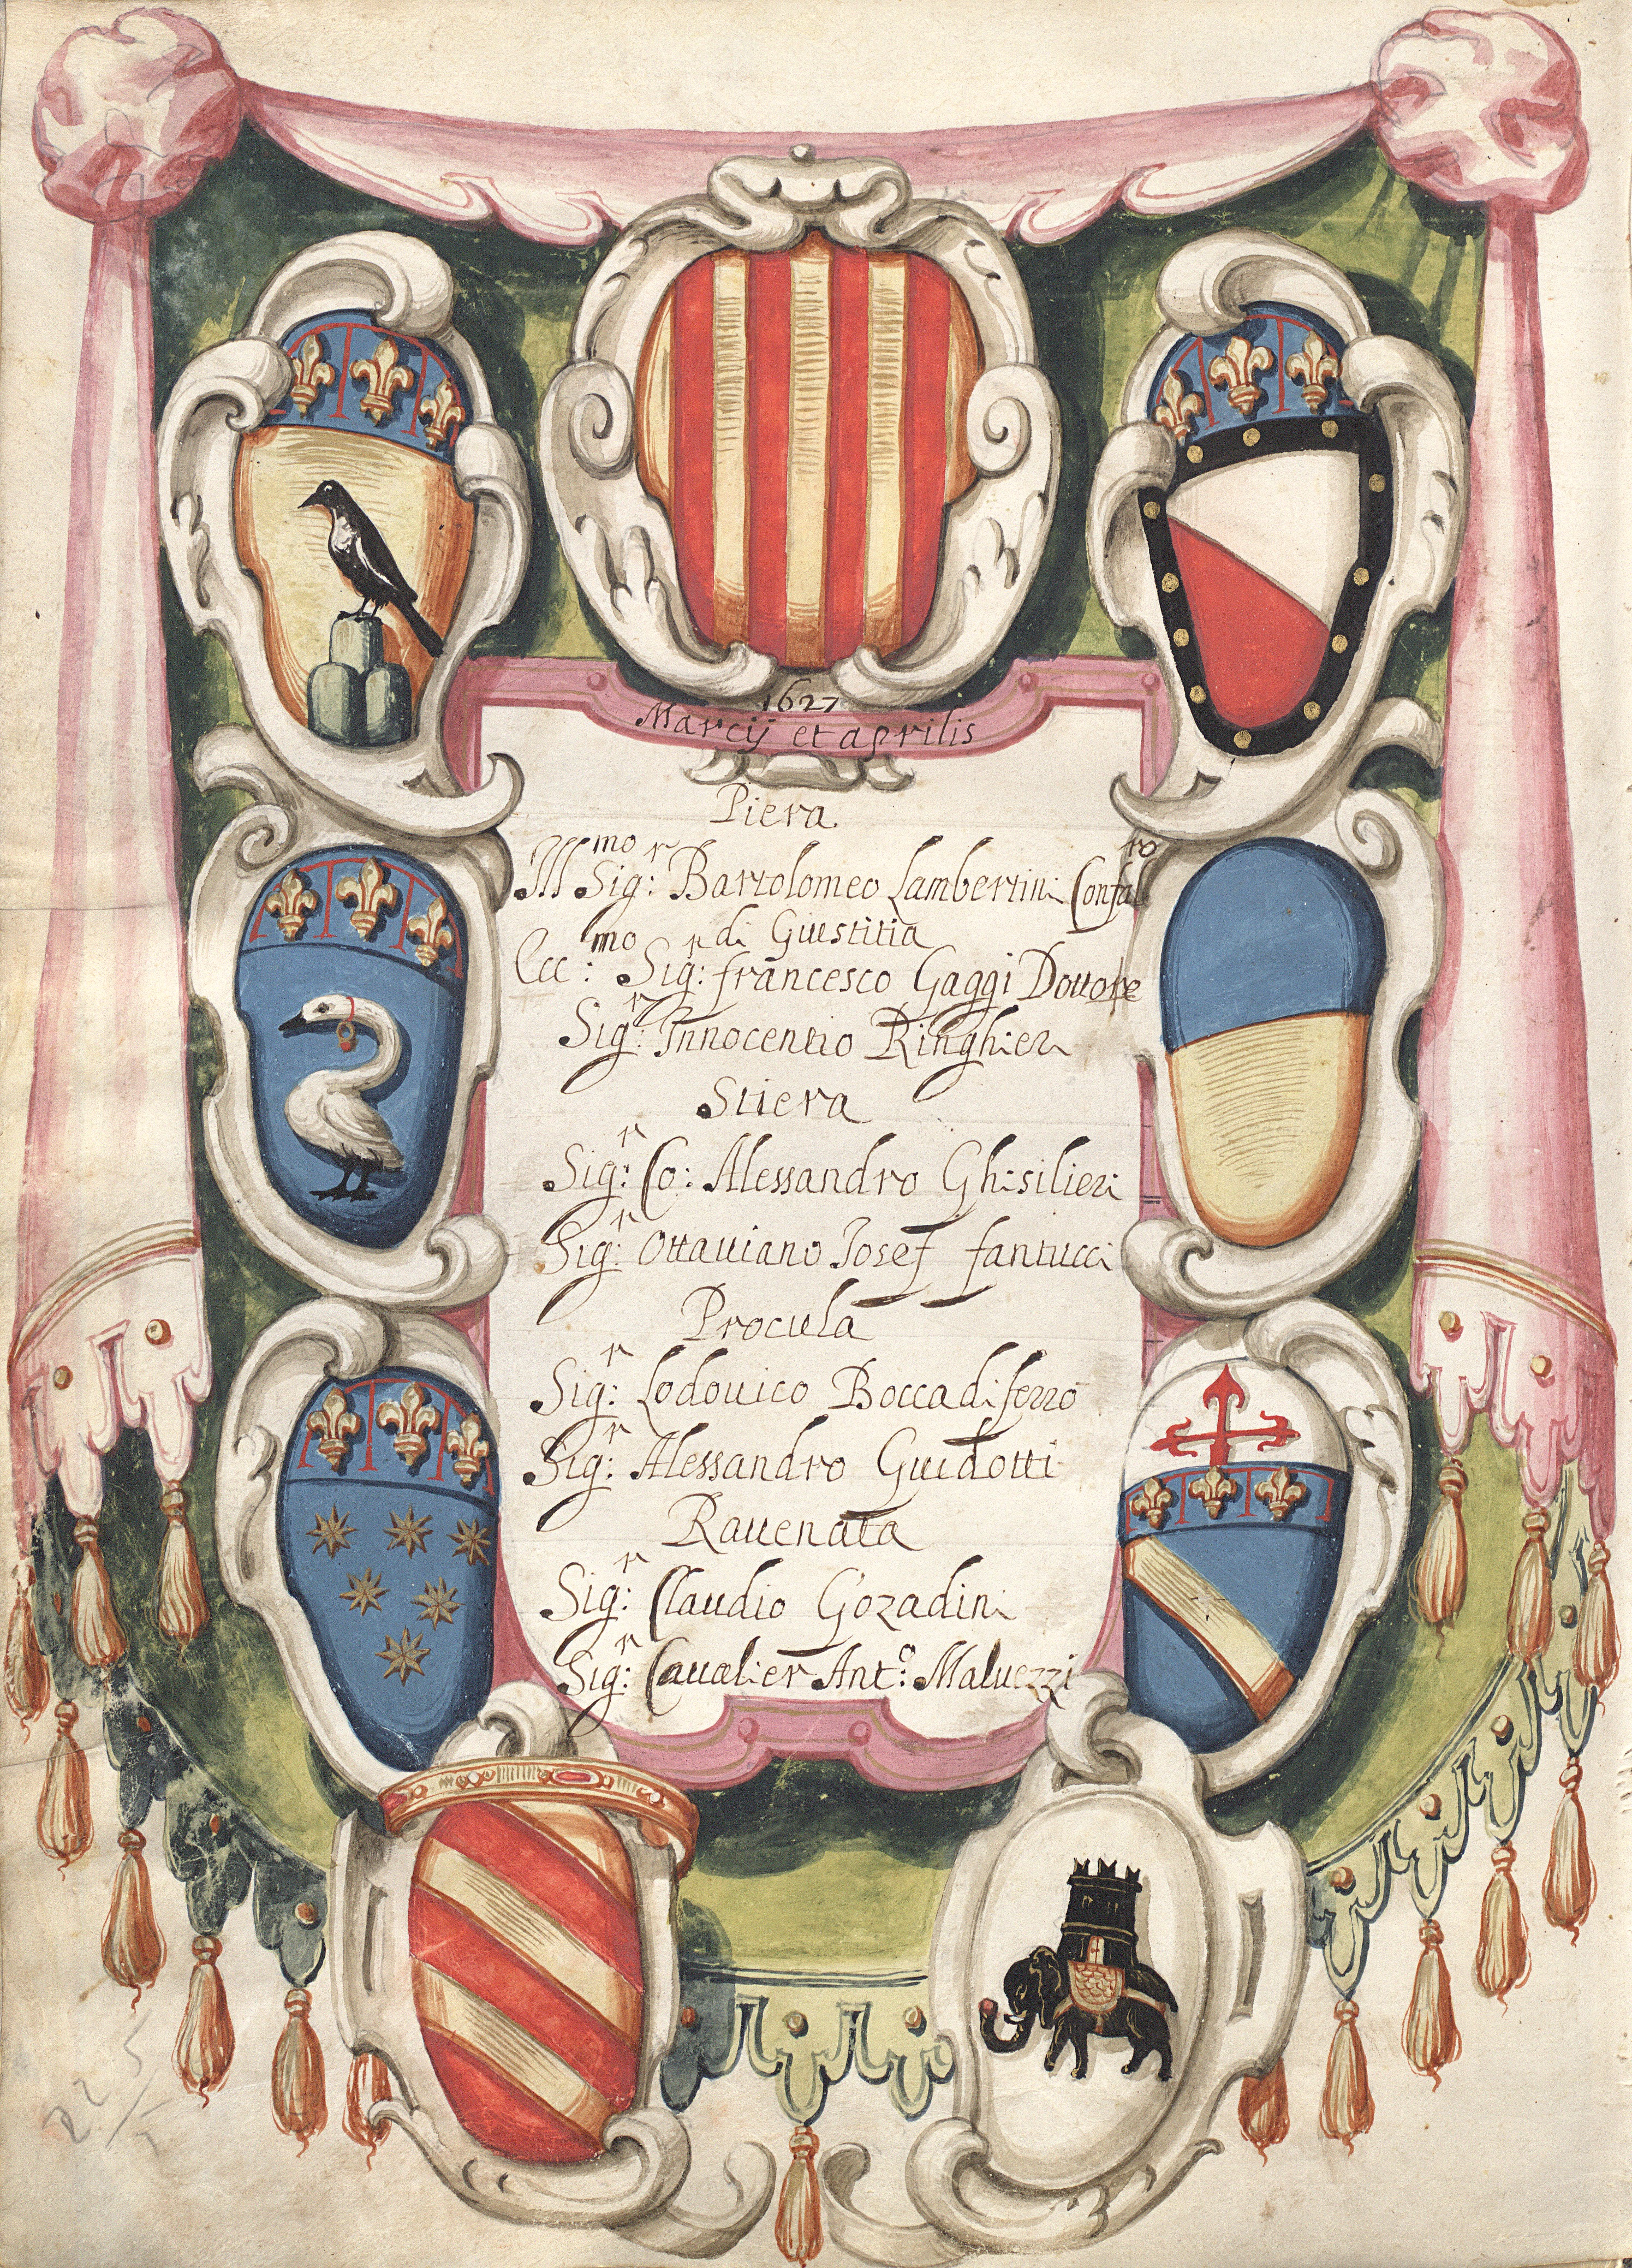 1627
Marcij et aprilis
Piera
Ill.mo Sig.r Bartolomeo Lambertini Confal.ro
di Giustitia
Ecc.mo Sig.r francesco Gaggi Dottore
Sig.r Innocentio Ringhieri
Stiera
Sig.r Co: Alessandro Ghisilieri
Sig.r Ottauiano Iosef fantucci
Procula
Sig.r Lodouico Boccadiferro
Sig.r Alessandro Guidotti
Rauenata
Sig.r Claudio Gozadini
Sig.r Caualier Ant.o Maluezzi